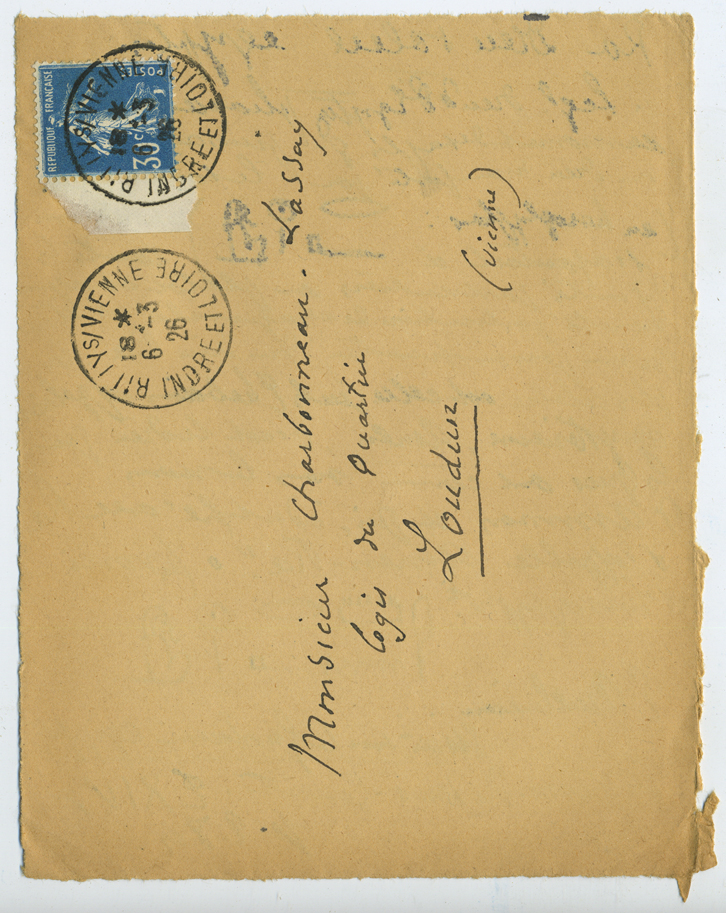 REPUBLIQUE FRANÇAISE
POSTES
30 c
RILLY S/VIENNE
18 *
6 -3
26
INDRE ET LOIRE
RILLY S/VIENNE
18 *
6 -3
26
INDRE ET LOIRE
Monsieur Charbonneau-Lassay
Logis du Quartin
Loudun
(Vienne)